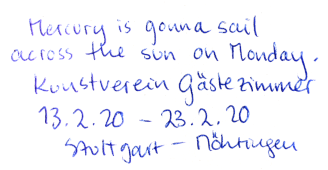 Mercury is gonna sail
across the sun on Monday.
Kunstverein Gästezimmer
13.2.20 – 23.2.20
Stuttgart – Möhringen